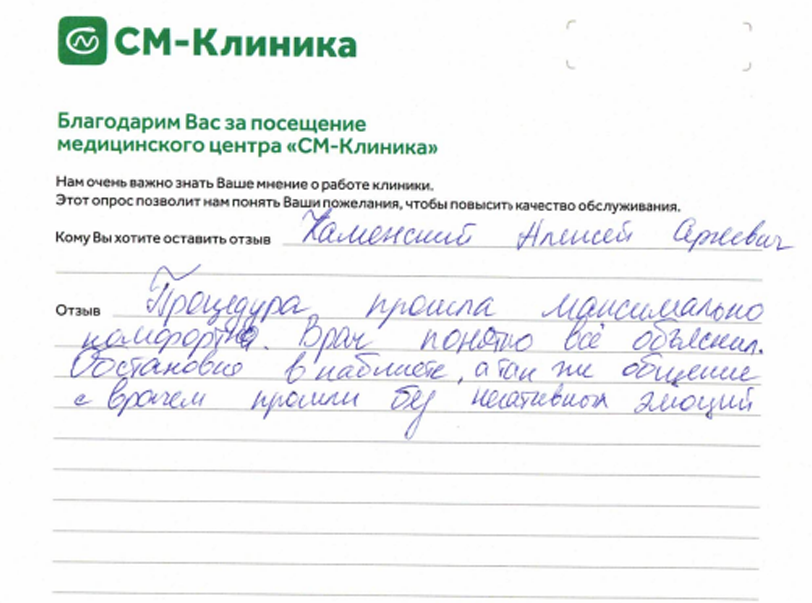 СМ-Клиника
Благодарим Вас за посещение
медицинского центра «СМ-Клиника»
Нам очень важно знать Ваше мнение о работе клиники.
Этот опрос позволит нам понять Ваши пожелания, чтобы повысить качество обслуживания.
Кому Вы хотите оставить отзыв Каменский Алексей
Отзыв Процедура прошла максимально
комфортно. Врач понятно всё объяснил.
Обстановка в кабинете, а так же общение
с врачем прошли без негативных эмоций